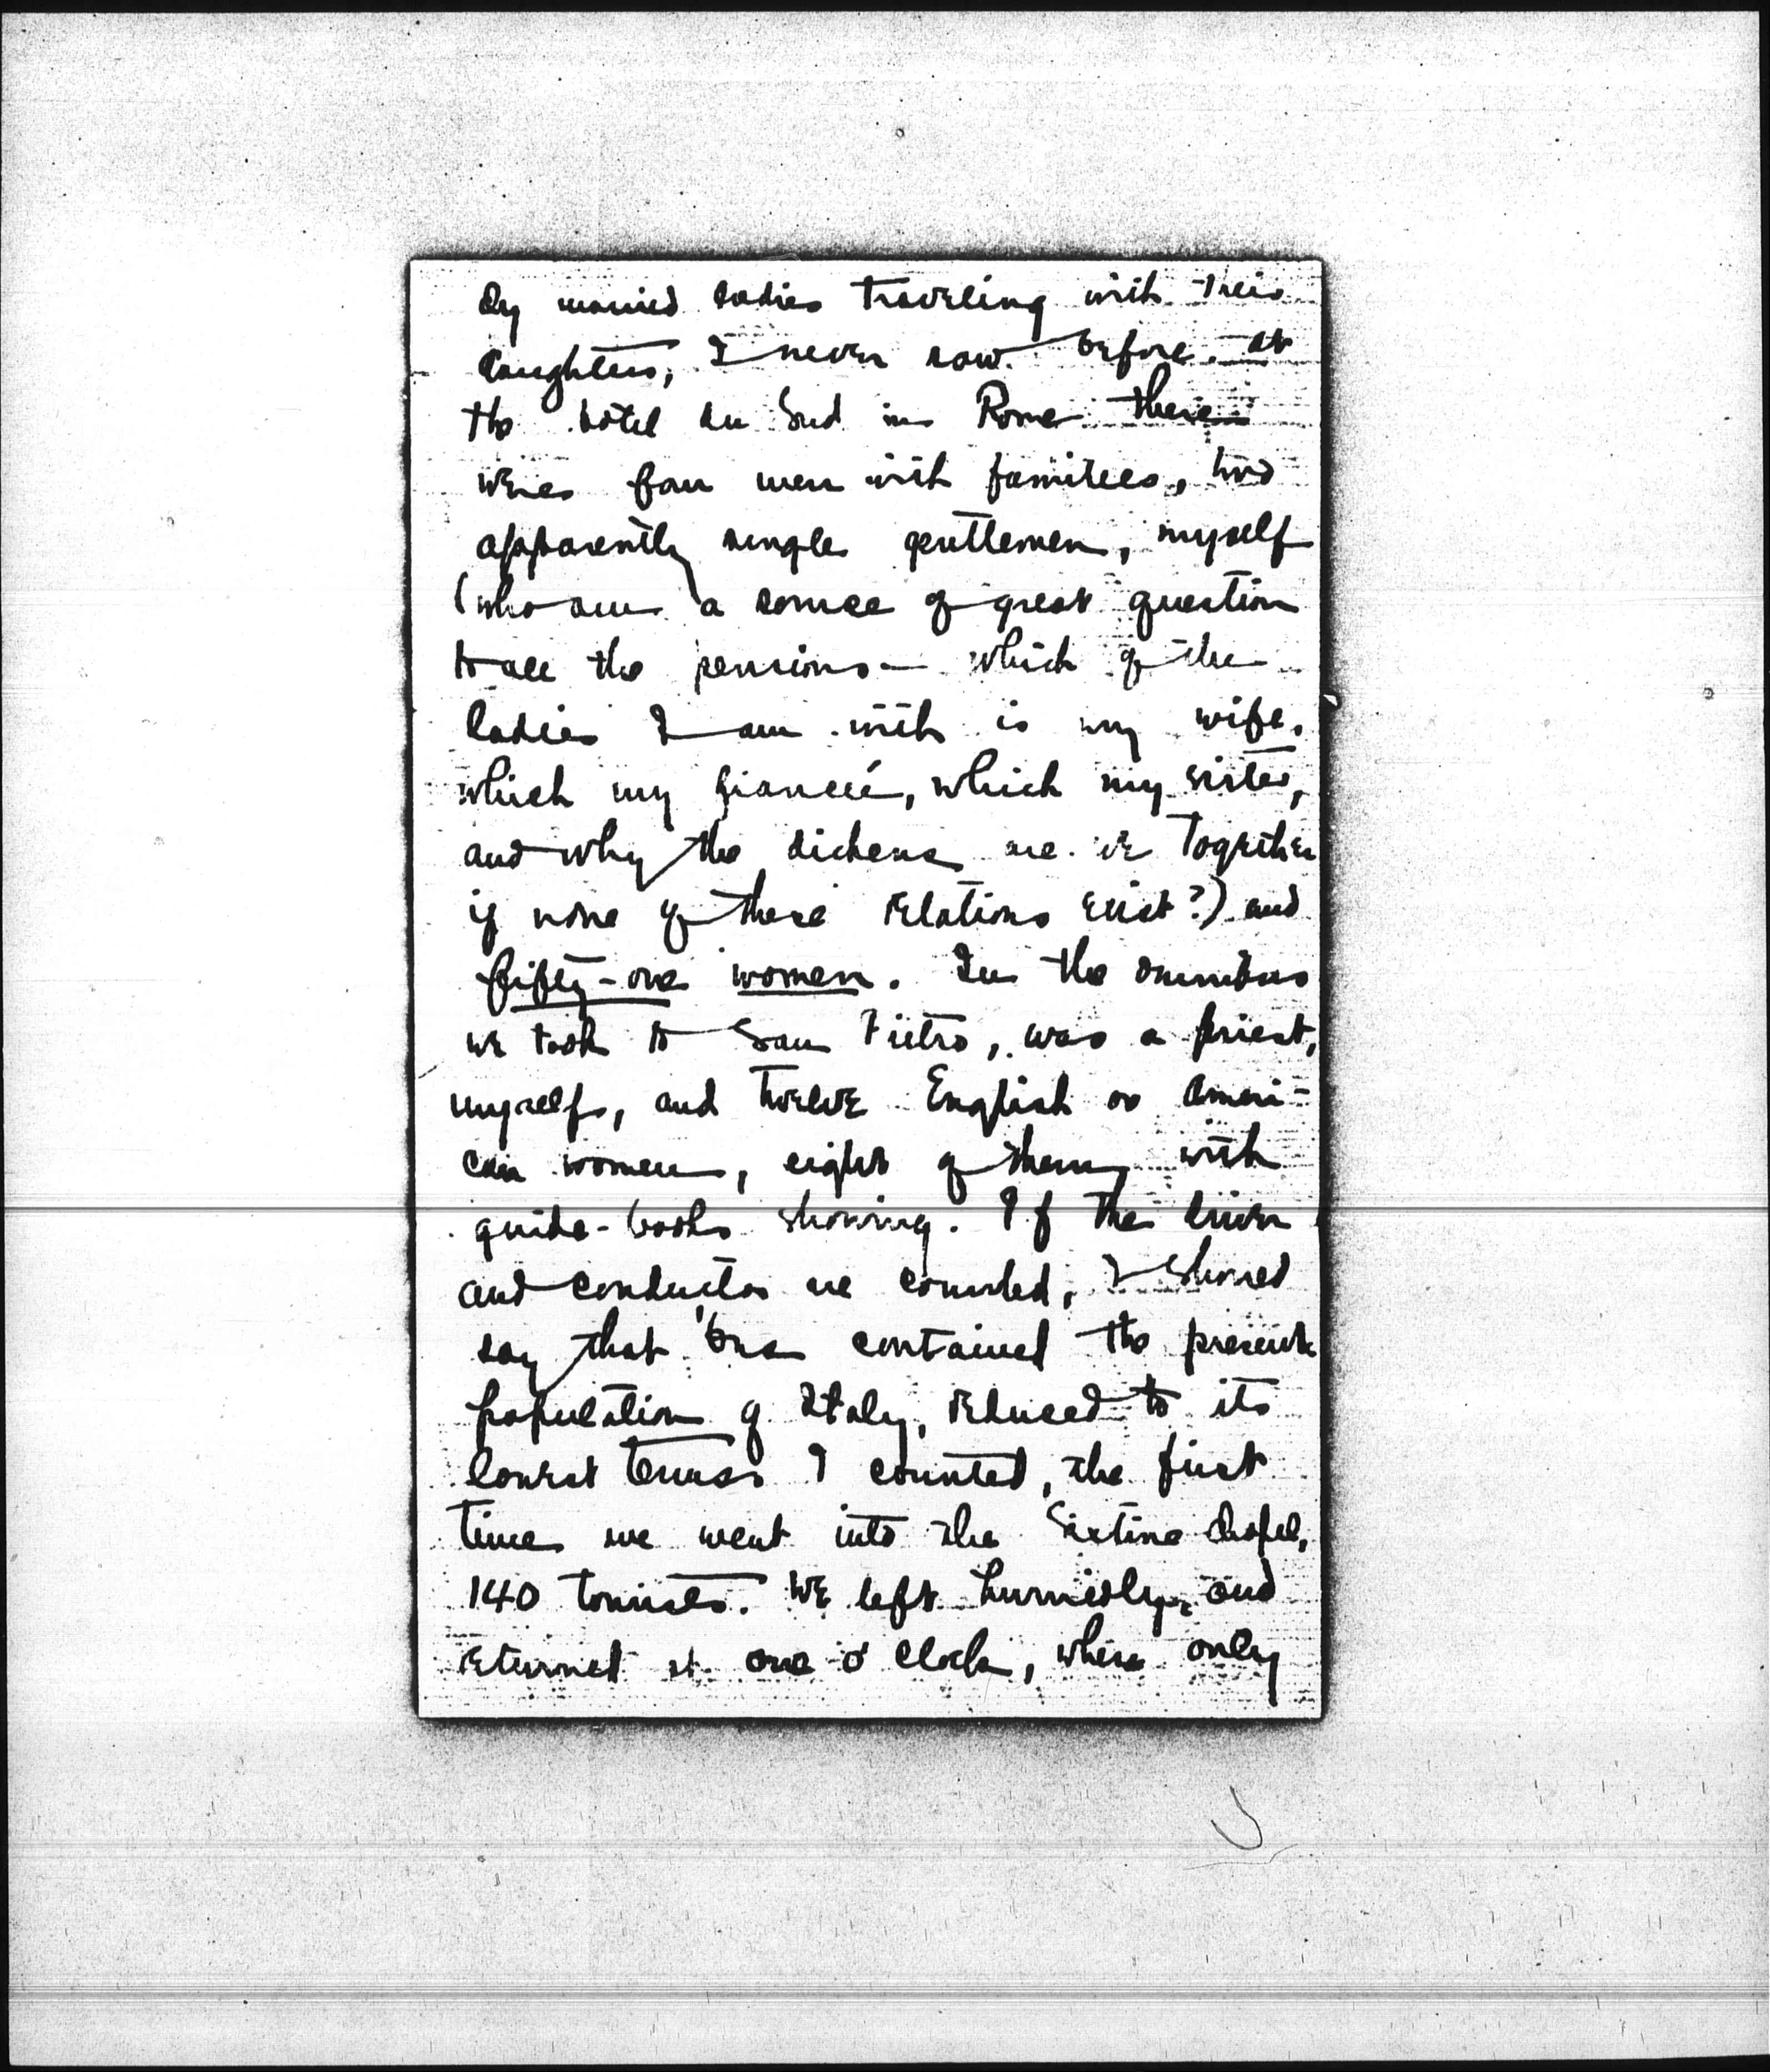 by married ladies traveling with their
daughters, I never saw before. At
the hôtel du Sud in Rome there
were four men with families, two
apparently single gentlemen, myself
(who am a source of great question
to all the pensions — which of the
ladies I am with is my wife,
which my fiancée, which my sister,
and why the dickens are we together
if none of these relations exist?) and
fifty-one women. In the omnibus
we took to San Pietro, was a priest,
myself, and twelve English or Ameri-
can women, eight of them with
guide-books showing. If the driver
and conductor are counted, I should
say that 'bus contained the present
population of Italy, reduced to its
lowest terms. I counted, the first
time we went into the Sixtine chapel,
140 tourists. We left hurriedly, and
returned at one o'clock, when only